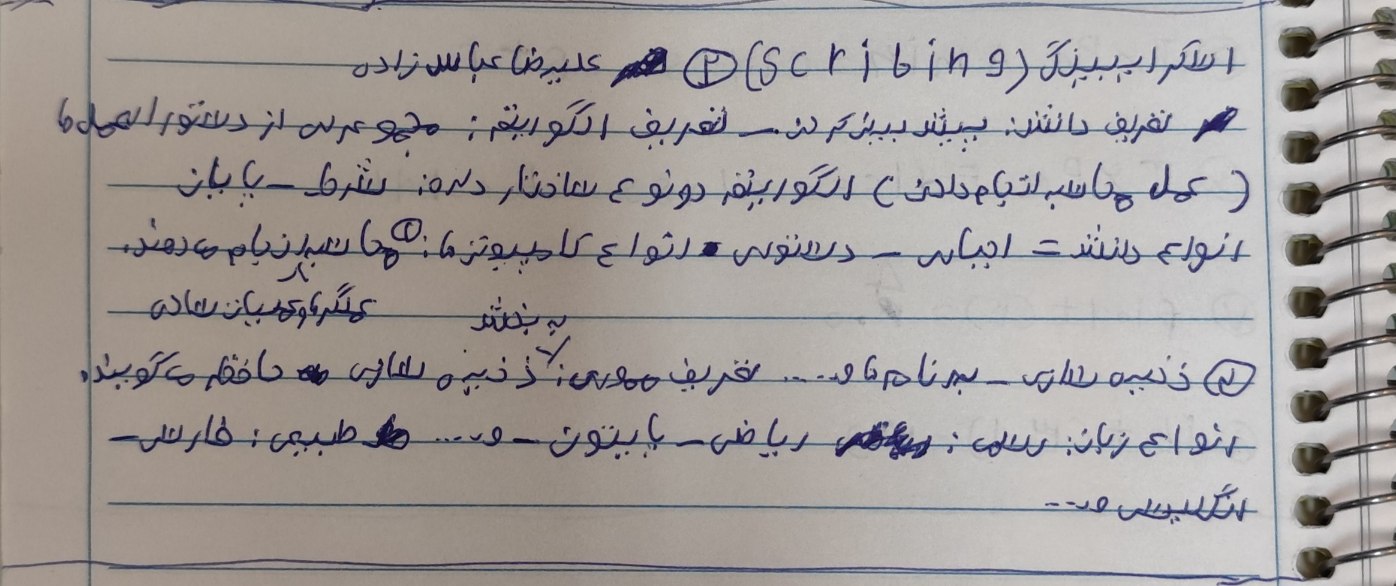 اسکرایبینگ (Scribing) ② علیرضا عباس زاده
تعریف دانش: پیش بینی کردن – تعریف الگوریتم: مجموعه ای از دستورالعمل ها
(عمل محاسبه انجام دادن) الگوریتم دو نوع ساختار داره: شرط – پایان
انواع دانش = اخباری – دستوری. انواع کامپیوتر ها: ① محاسبه انجام می دهند.
عملگرهای میان ساده
به بخش
② ذخیره سازی – برنامه ها و.... تعریف مموری: ذخیره سازی حافظه می گویند.
انواع زبان: رسمی: ریاضی – پایتون – و.... طبیعی: فارسی –
انگلیسی و...